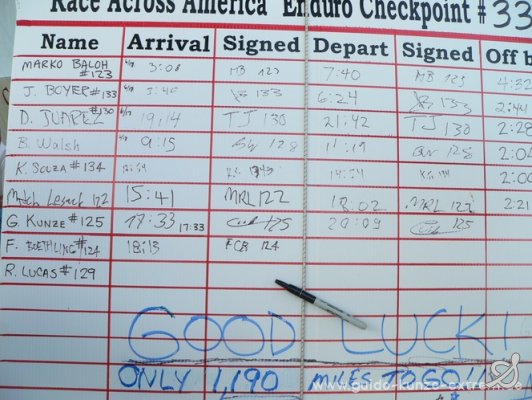 Race Across America Enduro Checkpoint # 33
Name Arrival Signed Depart Signed Off b
MARKO BALOH #123 3:08 MB 123 7:40 MB 123 4:32
J. BOYER #133 133 6:24 133 2:44
D. JUAREZ #130 19:14 TJ 130 21:42 TJ 130 2:28
B. Walsh 9:15 128 128 2:0
K. SOUZA #134 2:00
122 15:41 MRL 122 18:02 MRL 122 2:21
G. KUNZE #125 17:33 17:33 125 20:09 125
F. #124 18:13 FCB 124
R. LUCAS #129
GOOD LUCK!!
ONLY 1,190 MILES TO GO!!
www.guido-kunze-extrem.de